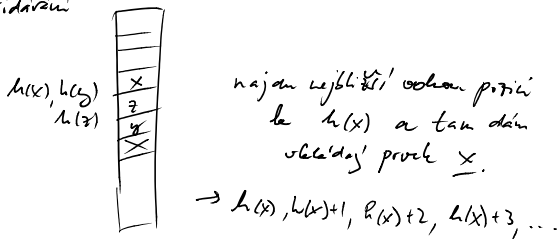 řidávání
x
h(x), h(y)
z
h(z)
y
x
najdu nejbližší volnou pozici
k h(x) a tam dám
vkládaný prvek x.
→ h(x), h(x)+1, h(x)+2, h(x)+3, ...